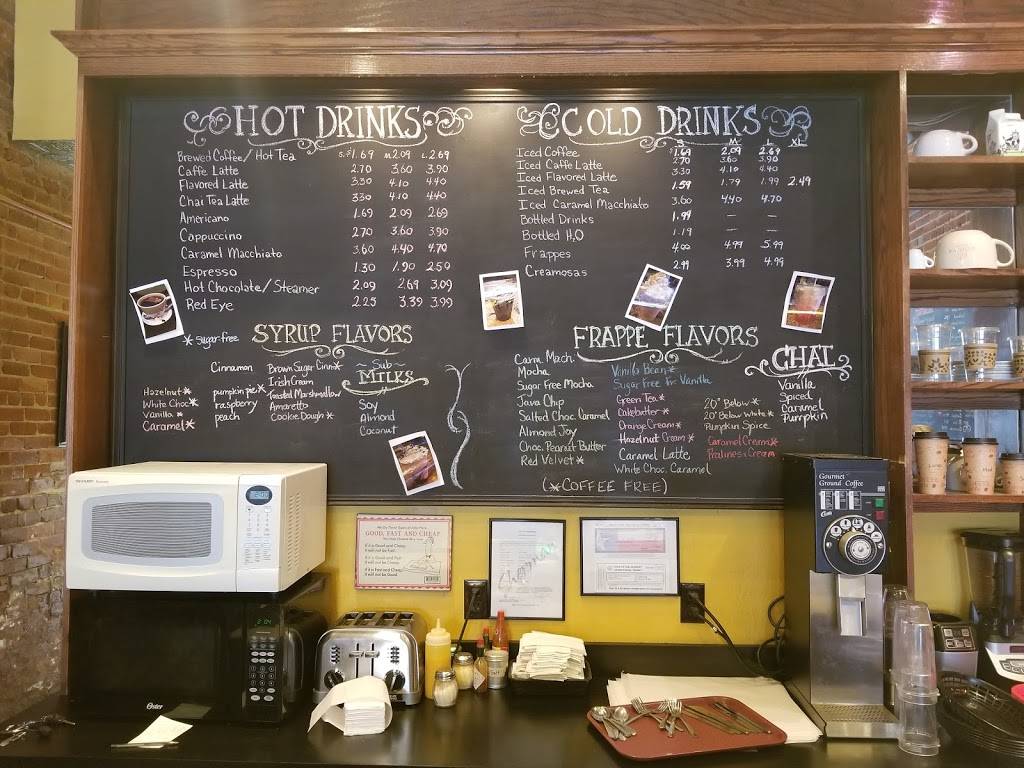 HOT DRINKS
Brewed Coffee/Hot Tea S.$1.69 M 2.09 L 2.69
Caffe Latte 2.70 3.60 3.90
Flavored Latte 3.30 4.10 4.40
Chai Tea Latte 3.30 4.10 4.40
Americano 1.69 2.09 2.69
Cappuccino 2.70 3.60 3.90
Caramel Macchiato 3.60 4.40 4.70
Espresso 1.30 1.90 2.50
Hot Chocolate/Steamer 2.09 2.69 3.09
Red Eye 2.25 3.39 3.99
COLD DRINKS
S M L XL
Iced Coffee $1.69 2.09 2.69
Iced Caffe Latte 2.70 3.60 3.90
Iced Flavored Latte 3.30 4.10 4.40
Iced Brewed Tea 1.59 1.79 1.99 2.49
Iced Caramel Macchiato 3.60 4.40 4.70
Bottled Drinks 1.99 — —
Bottled H2O 1.19 — —
Frappes 4.00 4.99 5.99
Creamosas 2.99 3.99 4.99
* Sugar-free
SYRUP FLAVORS
Hazelnut*
White Choc*
Vanilla *
Caramel*
Cinnamon
pumpkin pie*
raspberry
peach
Brown Sugar Cinn*
Irish Cream
Toasted Marshmallow
Amaretto
Cookie Dough*
Sub
MILKS
Soy
Almond
Coconut
FRAPPE FLAVORS
Carm. Mach.
Mocha
Sugar Free Mocha
Java Chip
Salted Choc. Caramel
Almond Joy
Choc. Peanut Butter
Red Velvet*
Vanilla Bean*
Sugar Free Fr Vanilla
Green Tea*
Cakebatter*
Orange Cream*
Hazelnut Cream*
Caramel Latte
White Choc. Caramel
20° Below*
20° Below White*
Pumpkin Spice
Caramel Cream*
Pralines & Cream
(*COFFEE FREE)
CHAI
Vanilla
Spiced
Caramel
Pumpkin
GOOD, FAST AND CHEAP
If it is Good and Cheap,
It will not be Fast.
If it is Good and Fast
It will not be Cheap.
If it is Fast and Cheap,
It will not be Good.
Gourmet
Ground Coffee
2:04
Oster